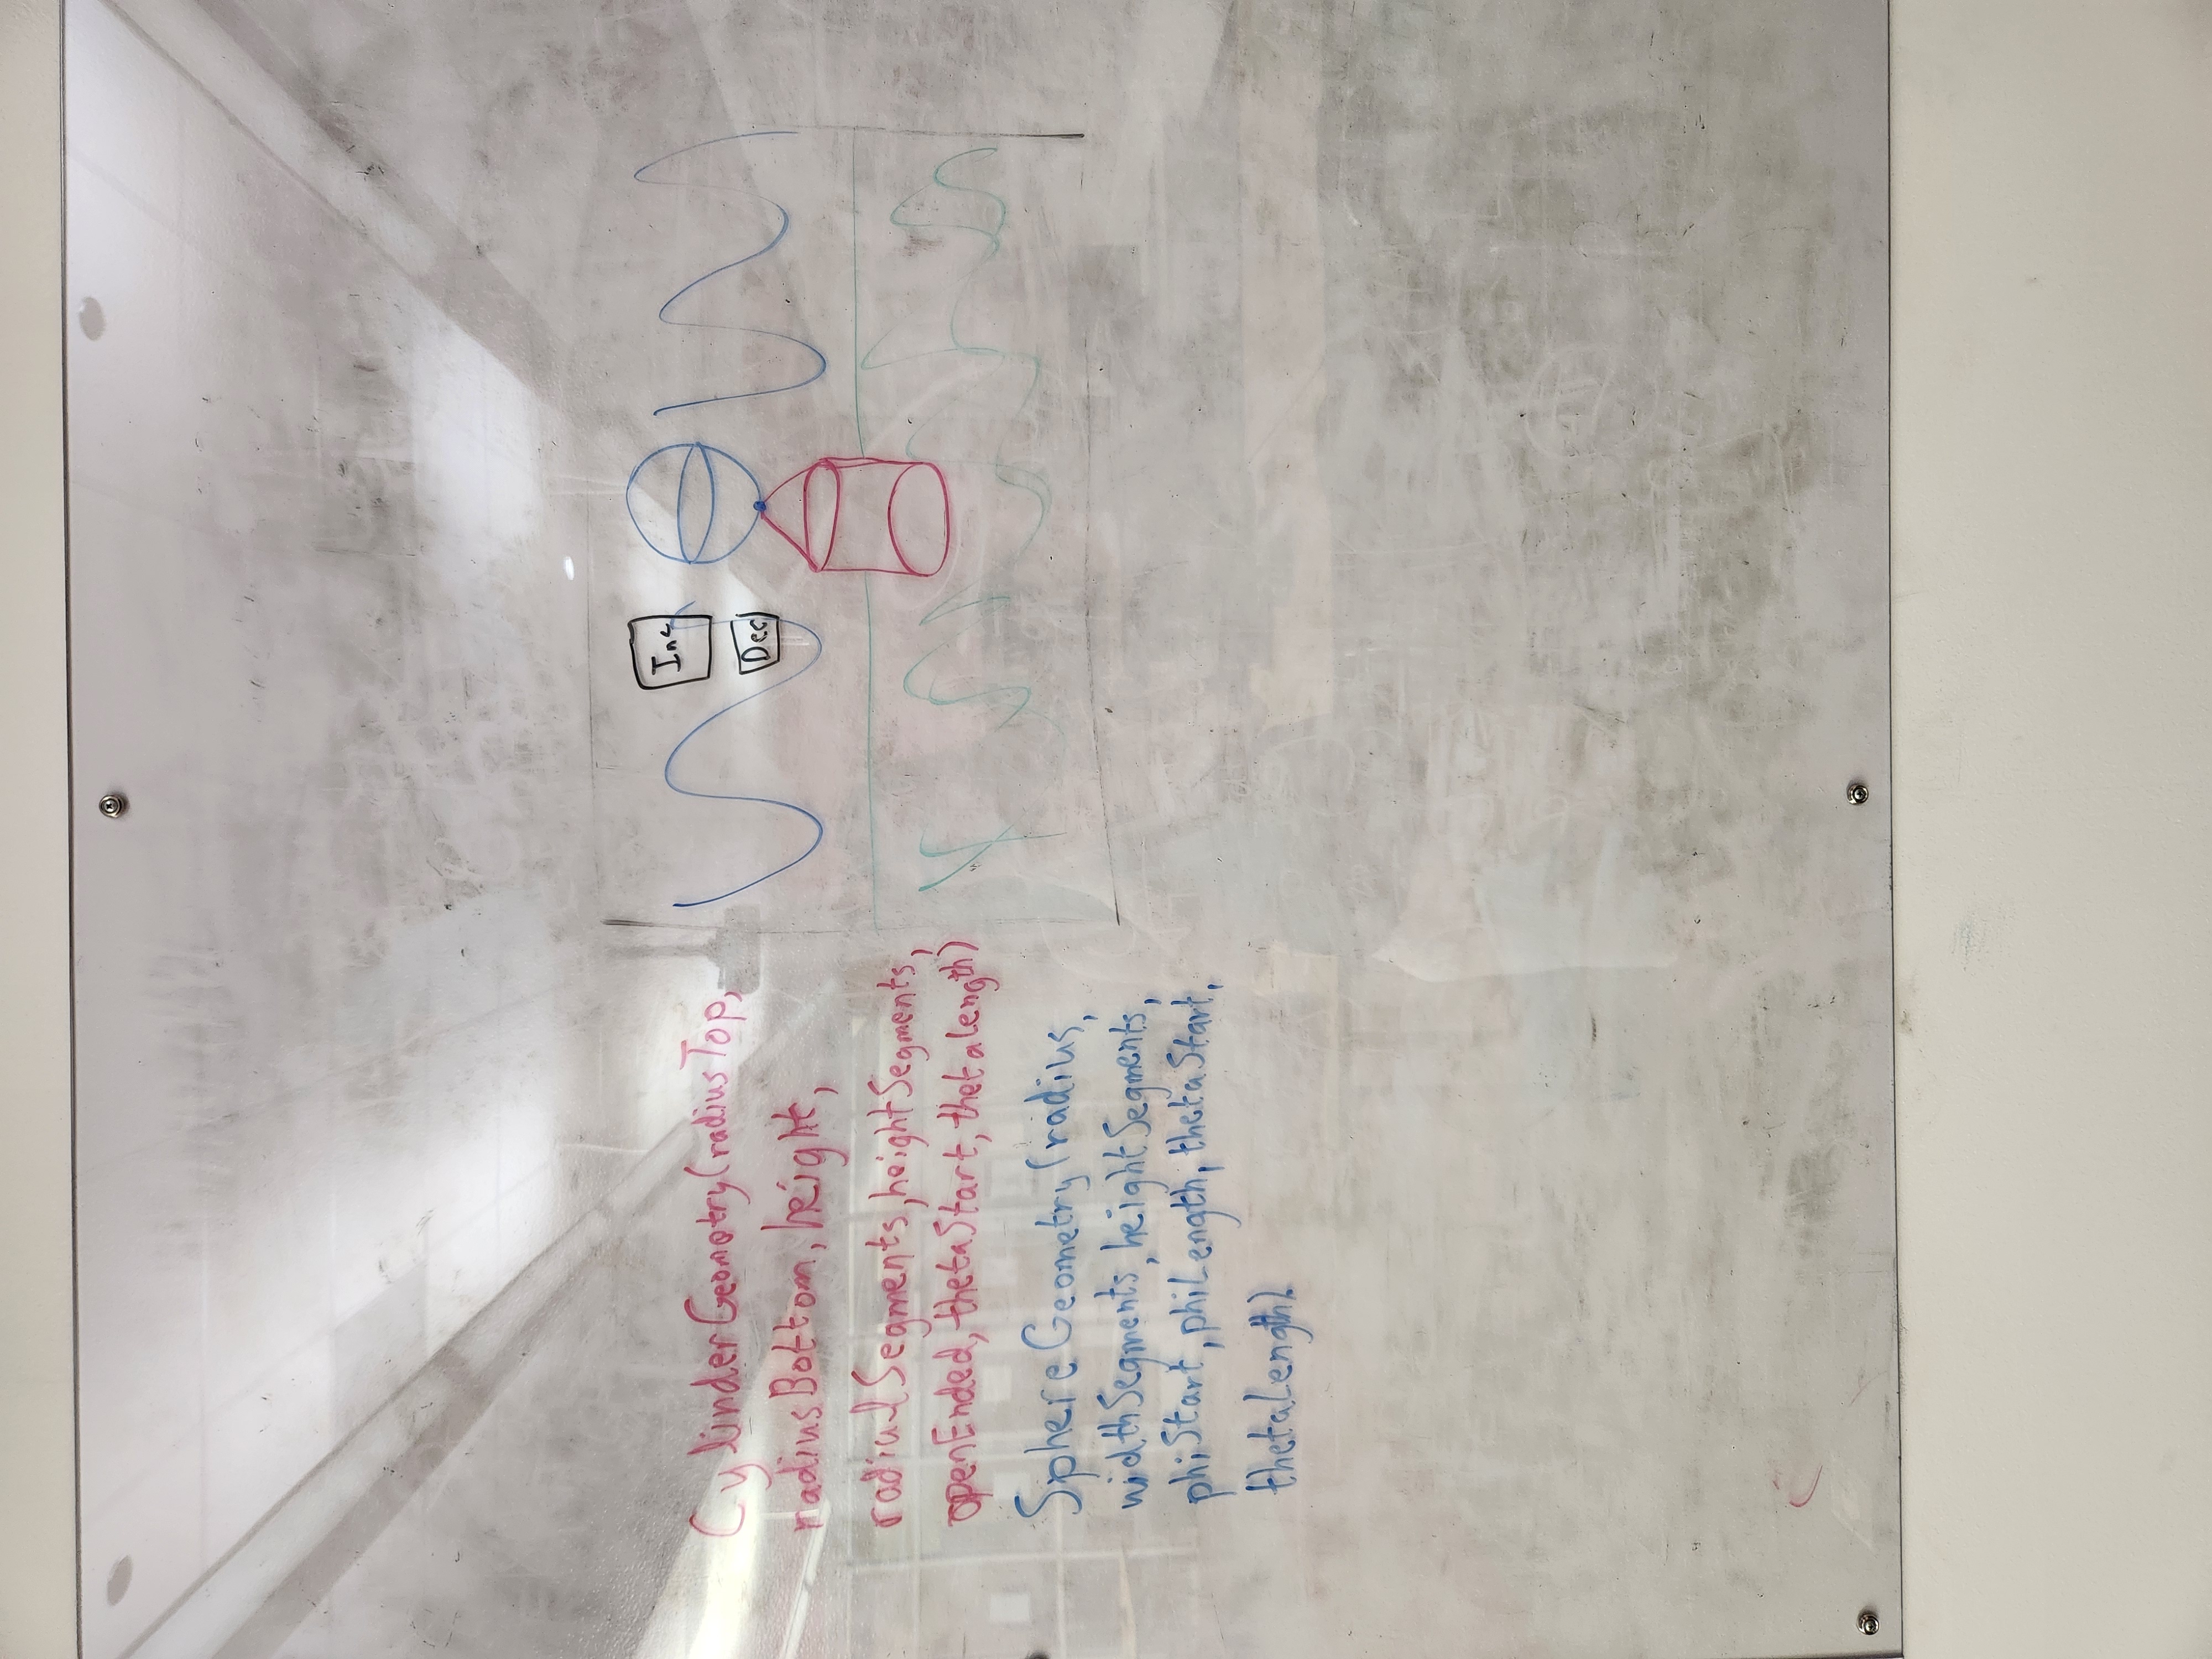 CylinderGeometry(radiusTop,
radiusBottom, height,
radialSegments, heightSegments,
openEnded, thetaStart, thetalength)
SphereGeometry(radius,
widthSegments, heightSegments,
phiStart, phiLength, thetaStart,
thetaLength).
Inc
Dec